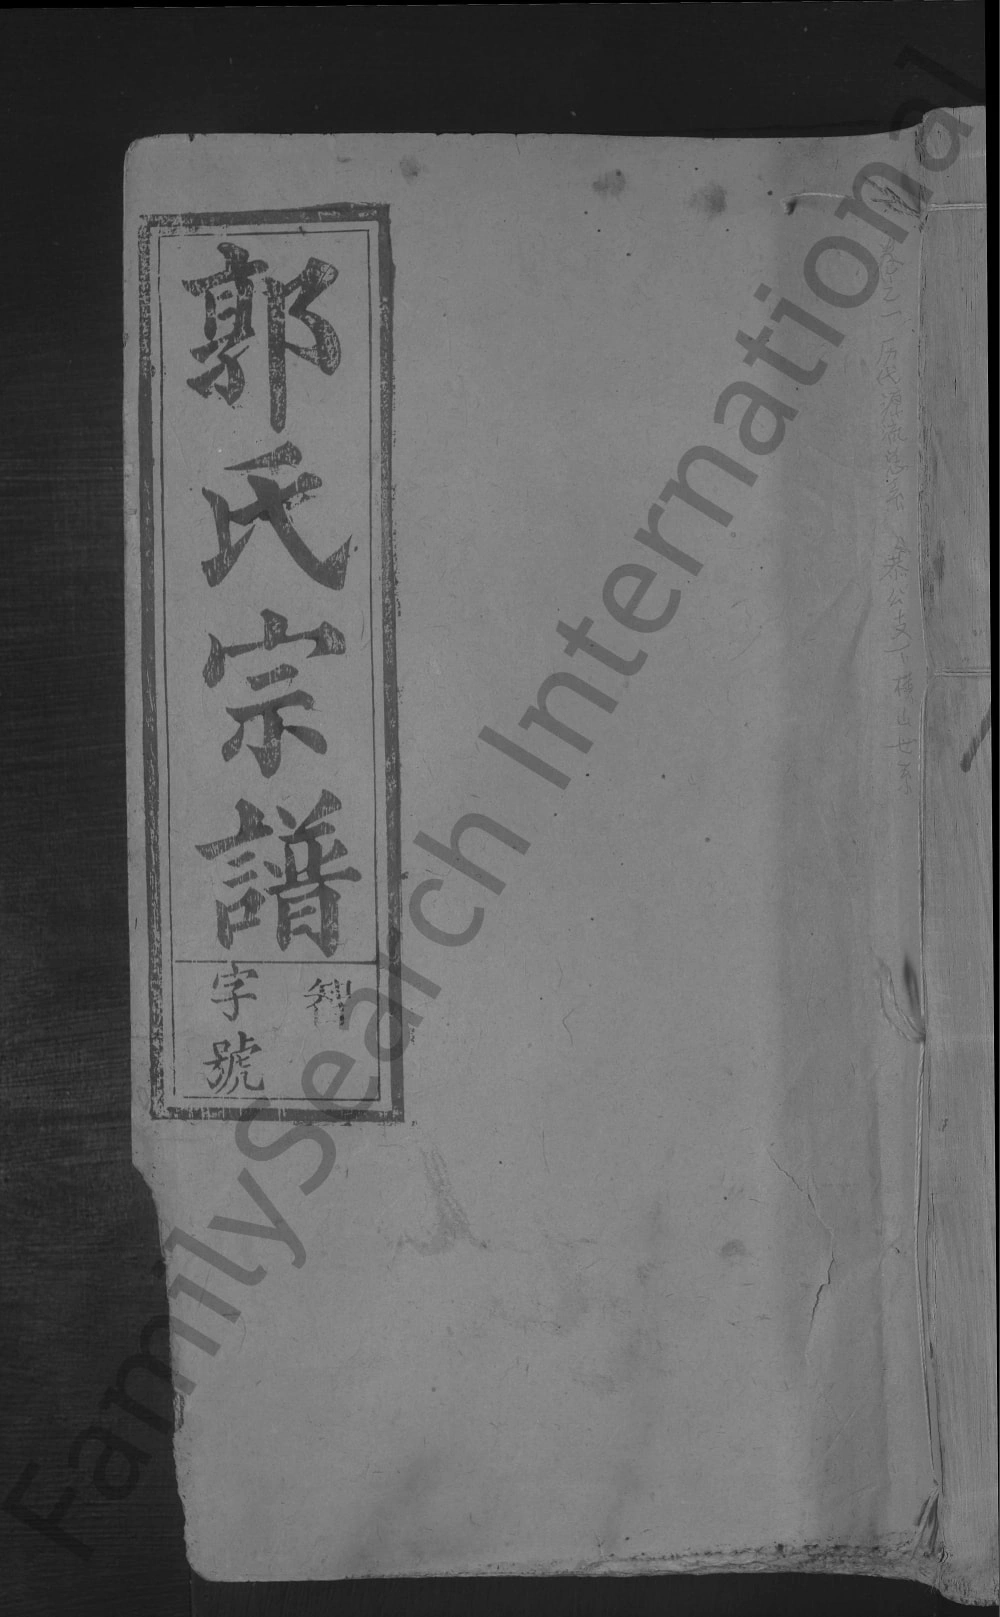 卷之一 历代源流总系 (荣公支) 梅山七系
郭氏宗譜
智
字號
FamilySearch International